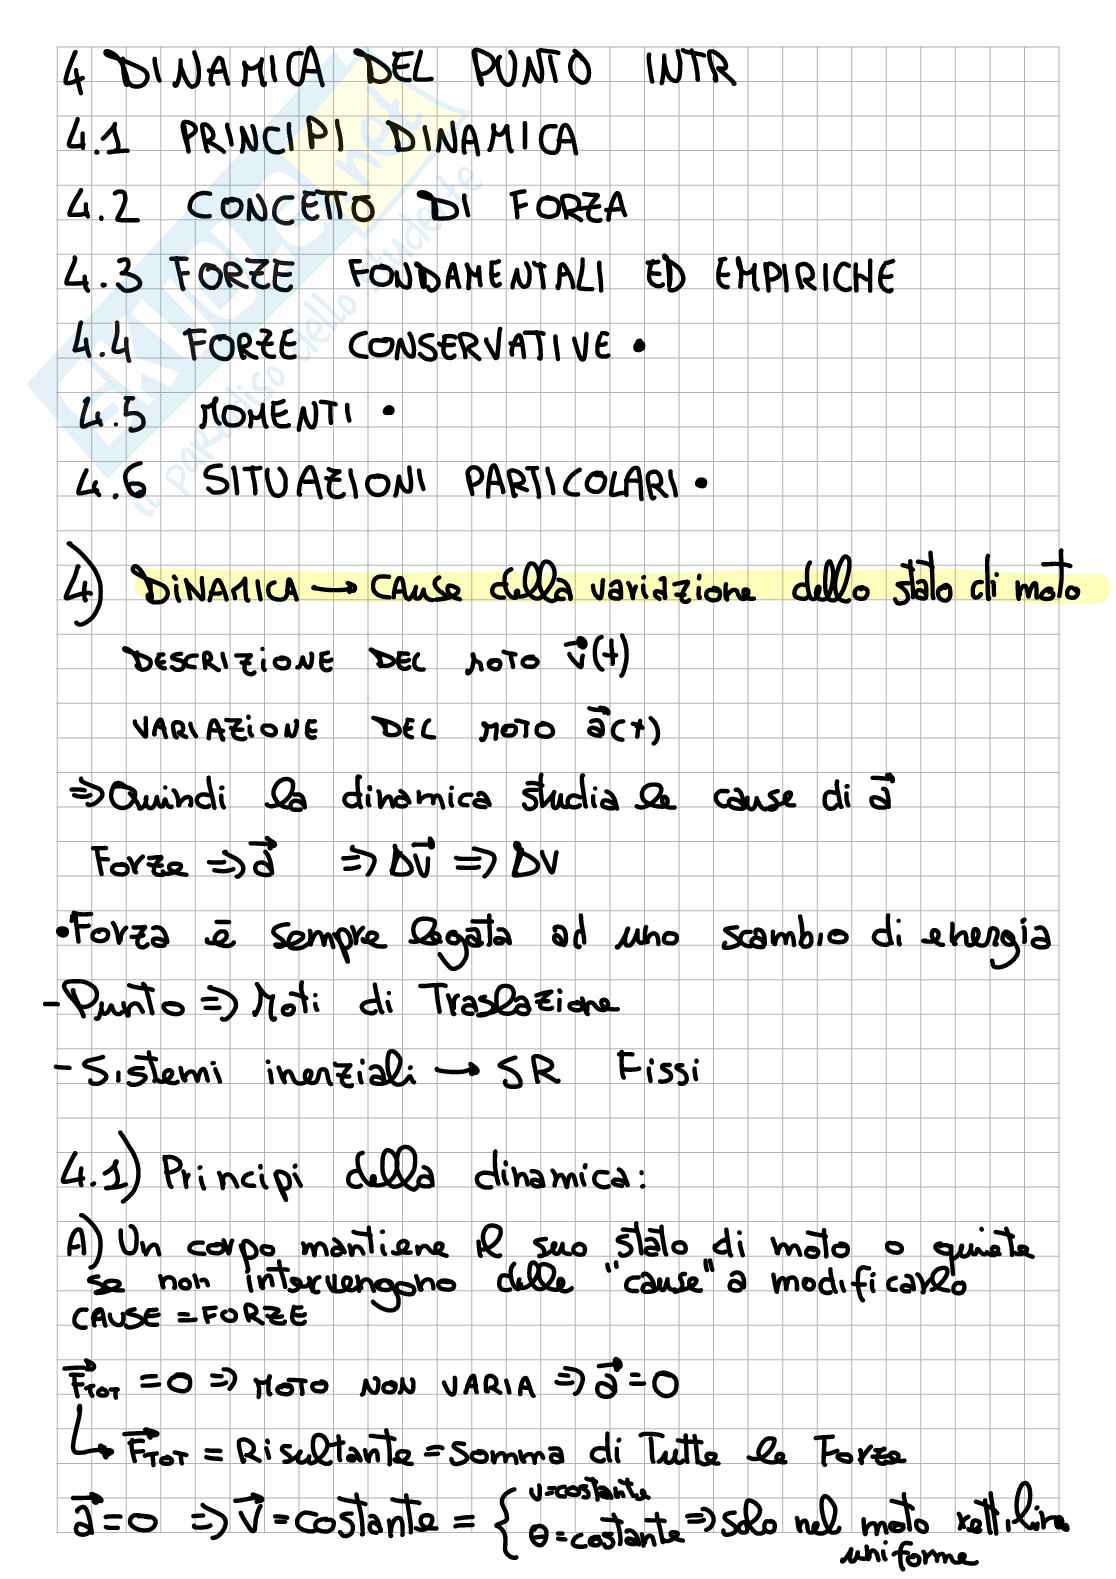 4 DINAMICA DEL PUNTO INTR
4.1 PRINCIPI DINAMICA
4.2 CONCETTO DI FORZA
4.3 FORZE FONDAMENTALI ED EMPIRICHE
4.4 FORZE CONSERVATIVE •
4.5 MOMENTI •
4.6 SITUAZIONI PARTICOLARI •
4) DINAMICA → CAUSE della variazione dello stato di moto
DESCRIZIONE DEL MOTO v⃗(t)
VARIAZIONE DEL MOTO a⃗(t)
⇒ Quindi la dinamica studia le cause di a⃗
Forze ⇒ a⃗ ⇒ Δv⃗ ⇒ ΔV
• Forza è sempre legata ad uno scambio di energia
- Punto ⇒ Moti di Traslazione
- Sistemi inerziali → SR Fissi
4.1) Principi della dinamica:
A) Un corpo mantiene il suo stato di moto o quiete
se non intervengono delle "cause" a modificarlo
CAUSE = FORZE
F⃗TOT = 0 ⇒ MOTO NON VARIA ⇒ a⃗ = 0
↳ F⃗TOT = Risultante = somma di Tutte le Forze
a⃗ = 0 ⇒ v⃗ = costante = { v = costante
θ = costante ⇒ solo nel moto rettilineo
uniforme
SKUOLA.net
il paradiso dello studente